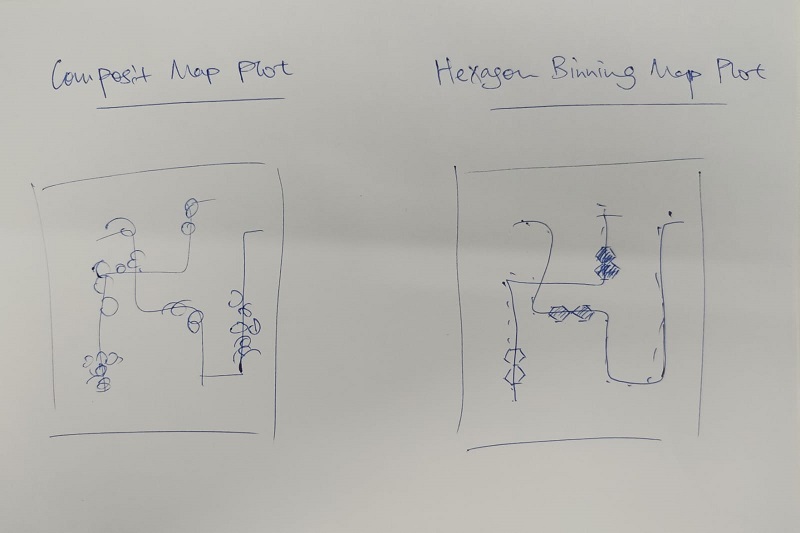 Composit Map Plot
Hexagon Binning Map Plot